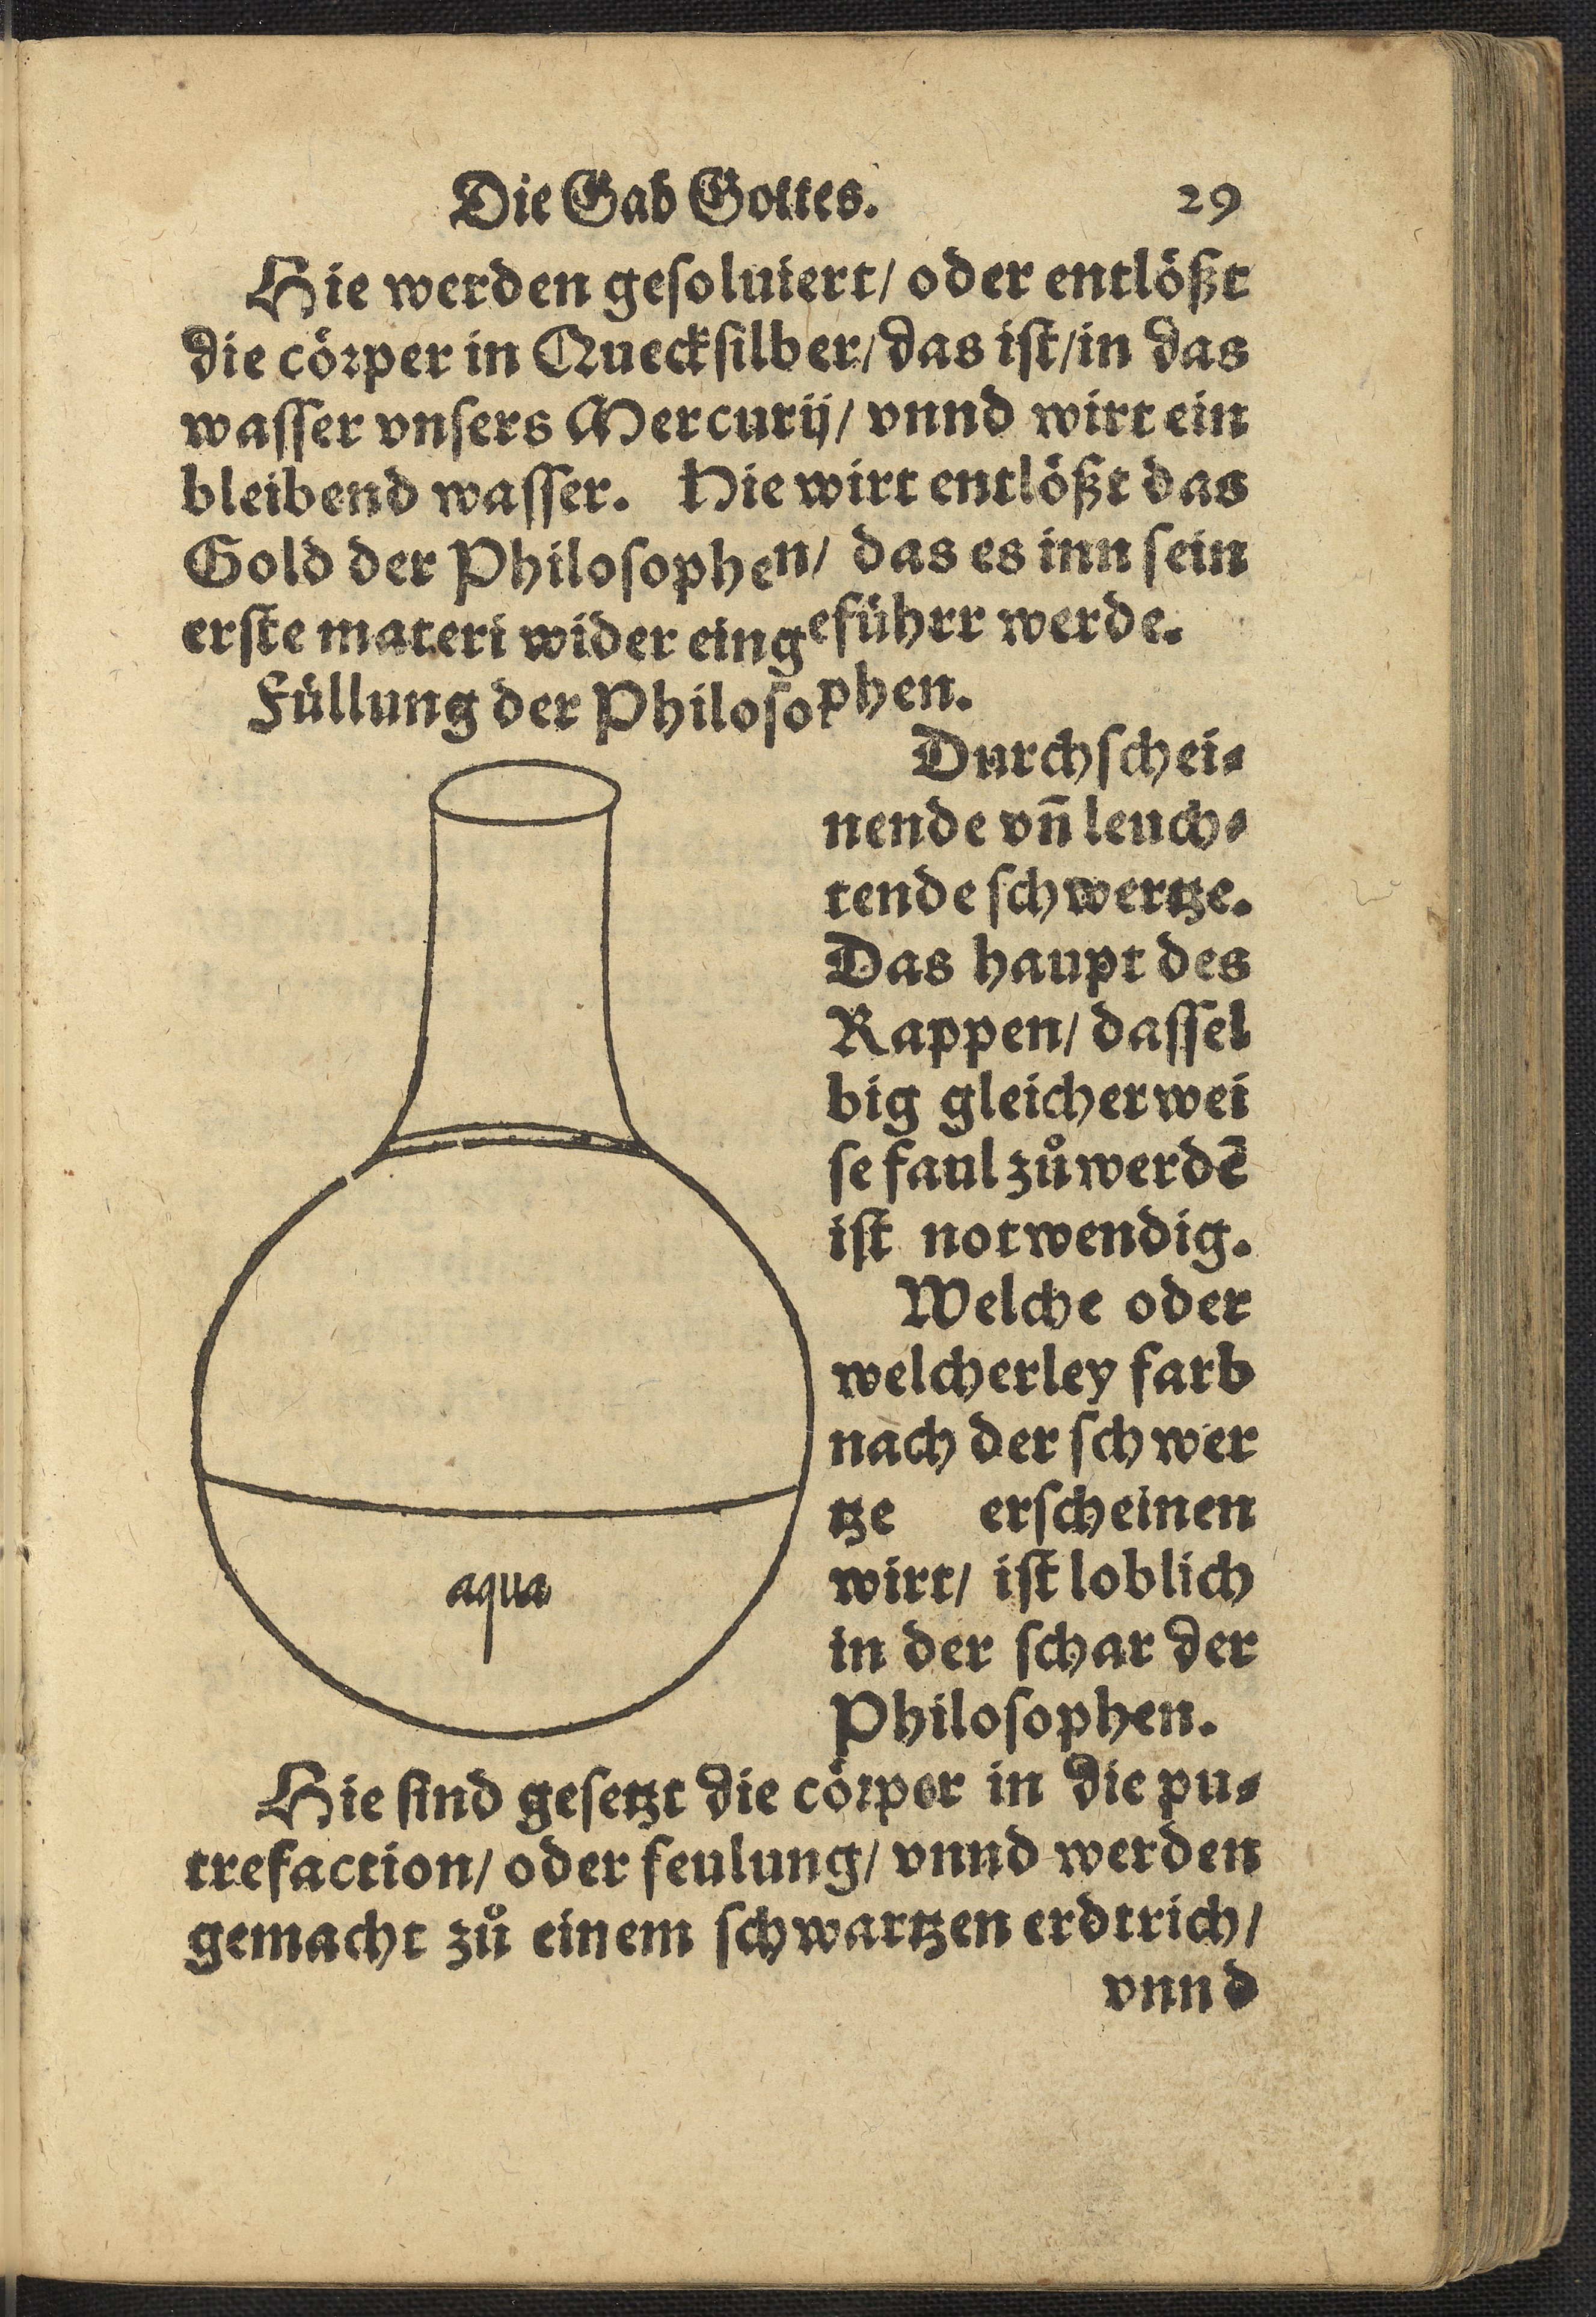 Die Gab Gottes. 29
Hie werden gesoluiert/ oder entlößt
die cörper in Quecksilber/das ist/in das
wasser vnsers Mercurij/ vnnd wirt ein
bleibend wasser. Hie wirt entlößt das
Gold der Philosophen/ das es inn sein
erste materi wider eingeführr werde.
Füllung der Philosophen.
Durchschei⸗
nende vn̄ leuch⸗
tende schwertze.
Das haupt des
Rappen/ dassel
big gleicherwei
se faul zů werdē
ist notwendig.
Welche oder
welcherley farb
nach der schwer
tze erscheinen
wirt/ ist loblich
in der schar der
Philosophen.
aqua
Hie sind gesetzt die cörper in die pu⸗
trefaction/ oder feulung/ vnnd werden
gemacht zů einem schwartzen erdtrich/
vnnd